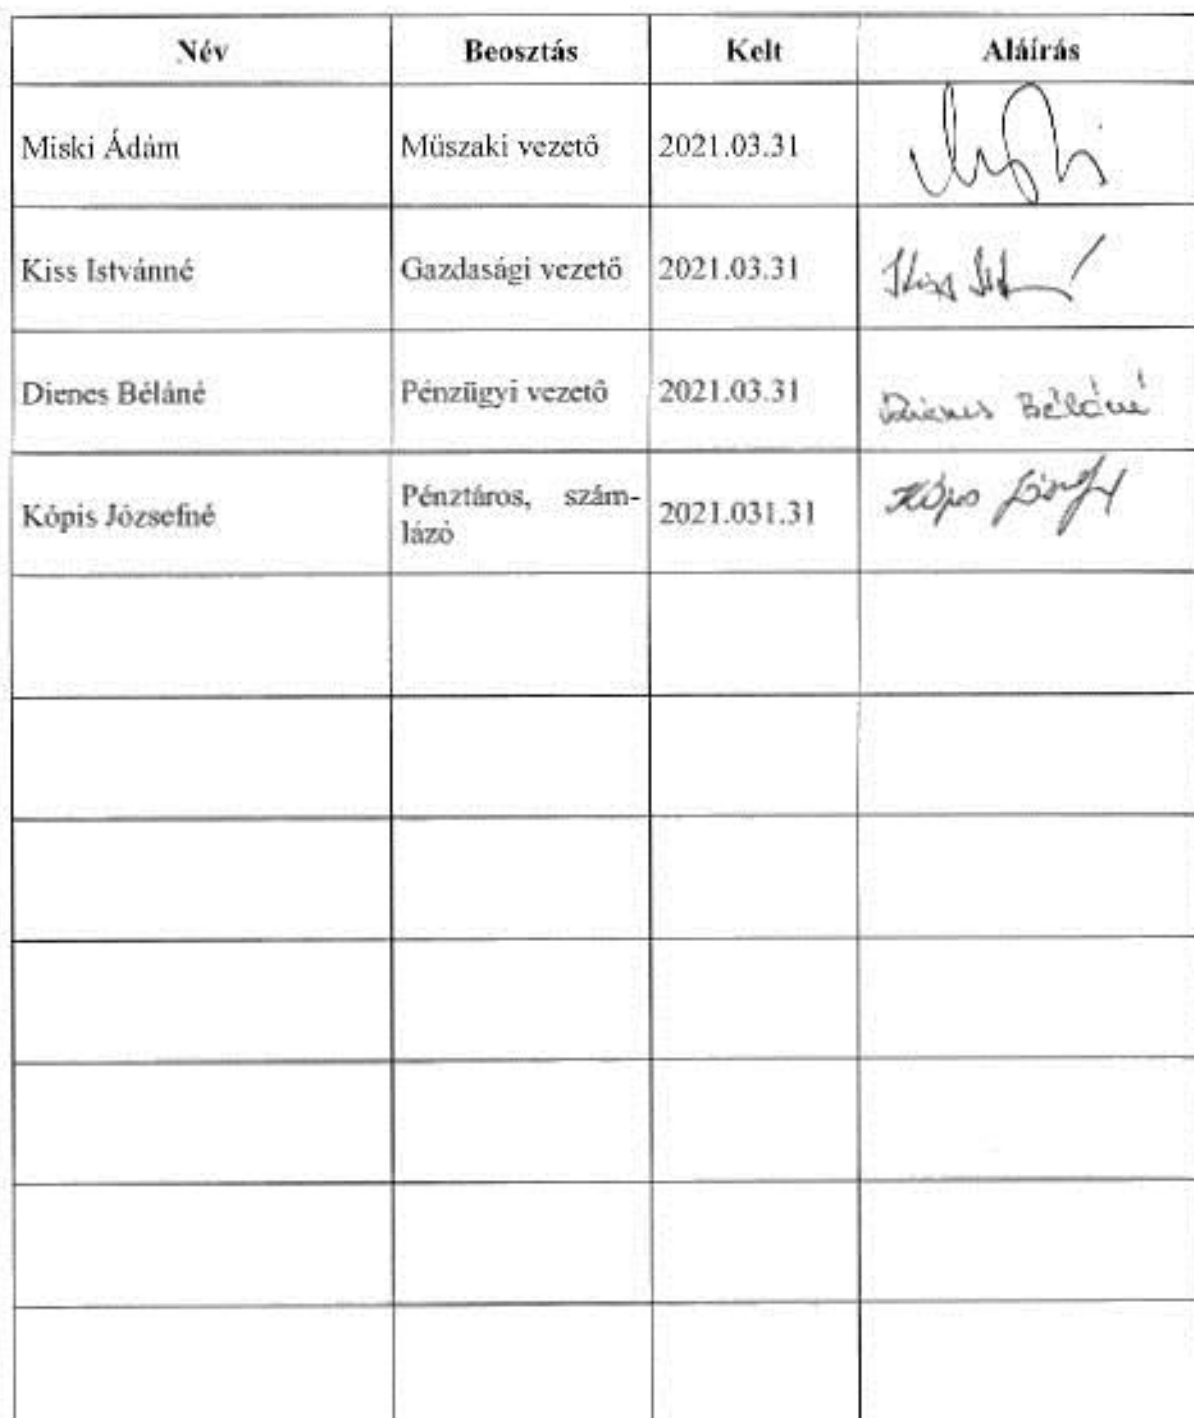 Név Beosztás Kelt Aláírás
Miski Ádám Műszaki vezető 2021.03.31
Kiss Istvánné Gazdasági vezető 2021.03.31
Dienes Béláné Pénzügyi vezető 2021.03.31 Dienes Béláné
Kópis Józsefné Pénztáros, szám-
lázó 2021.031.31